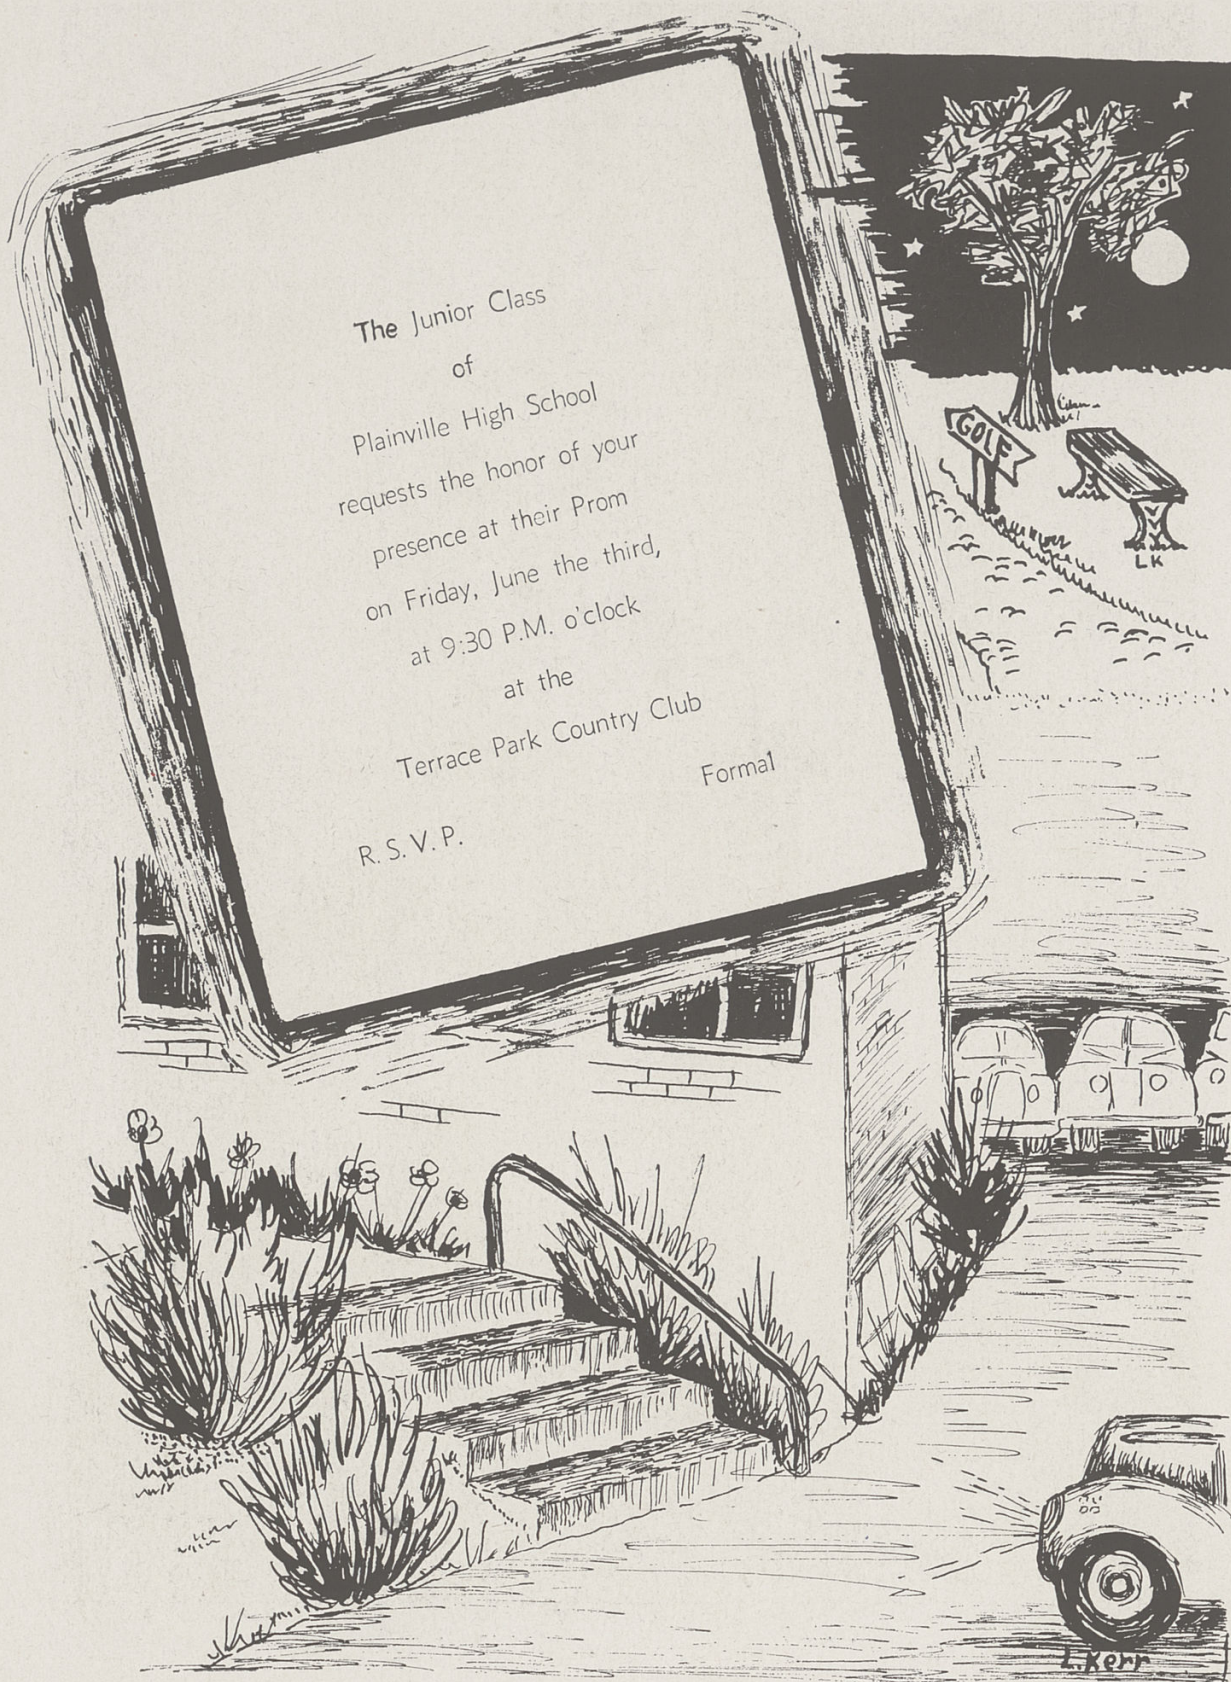 The Junior Class
of
Plainville High School
requests the honor of your
presence at their Prom
on Friday, June the third,
at 9:30 P.M. o'clock
at the
Terrace Park Country Club
Formal
R. S. V. P.
GOLF
LK
L. Kerr